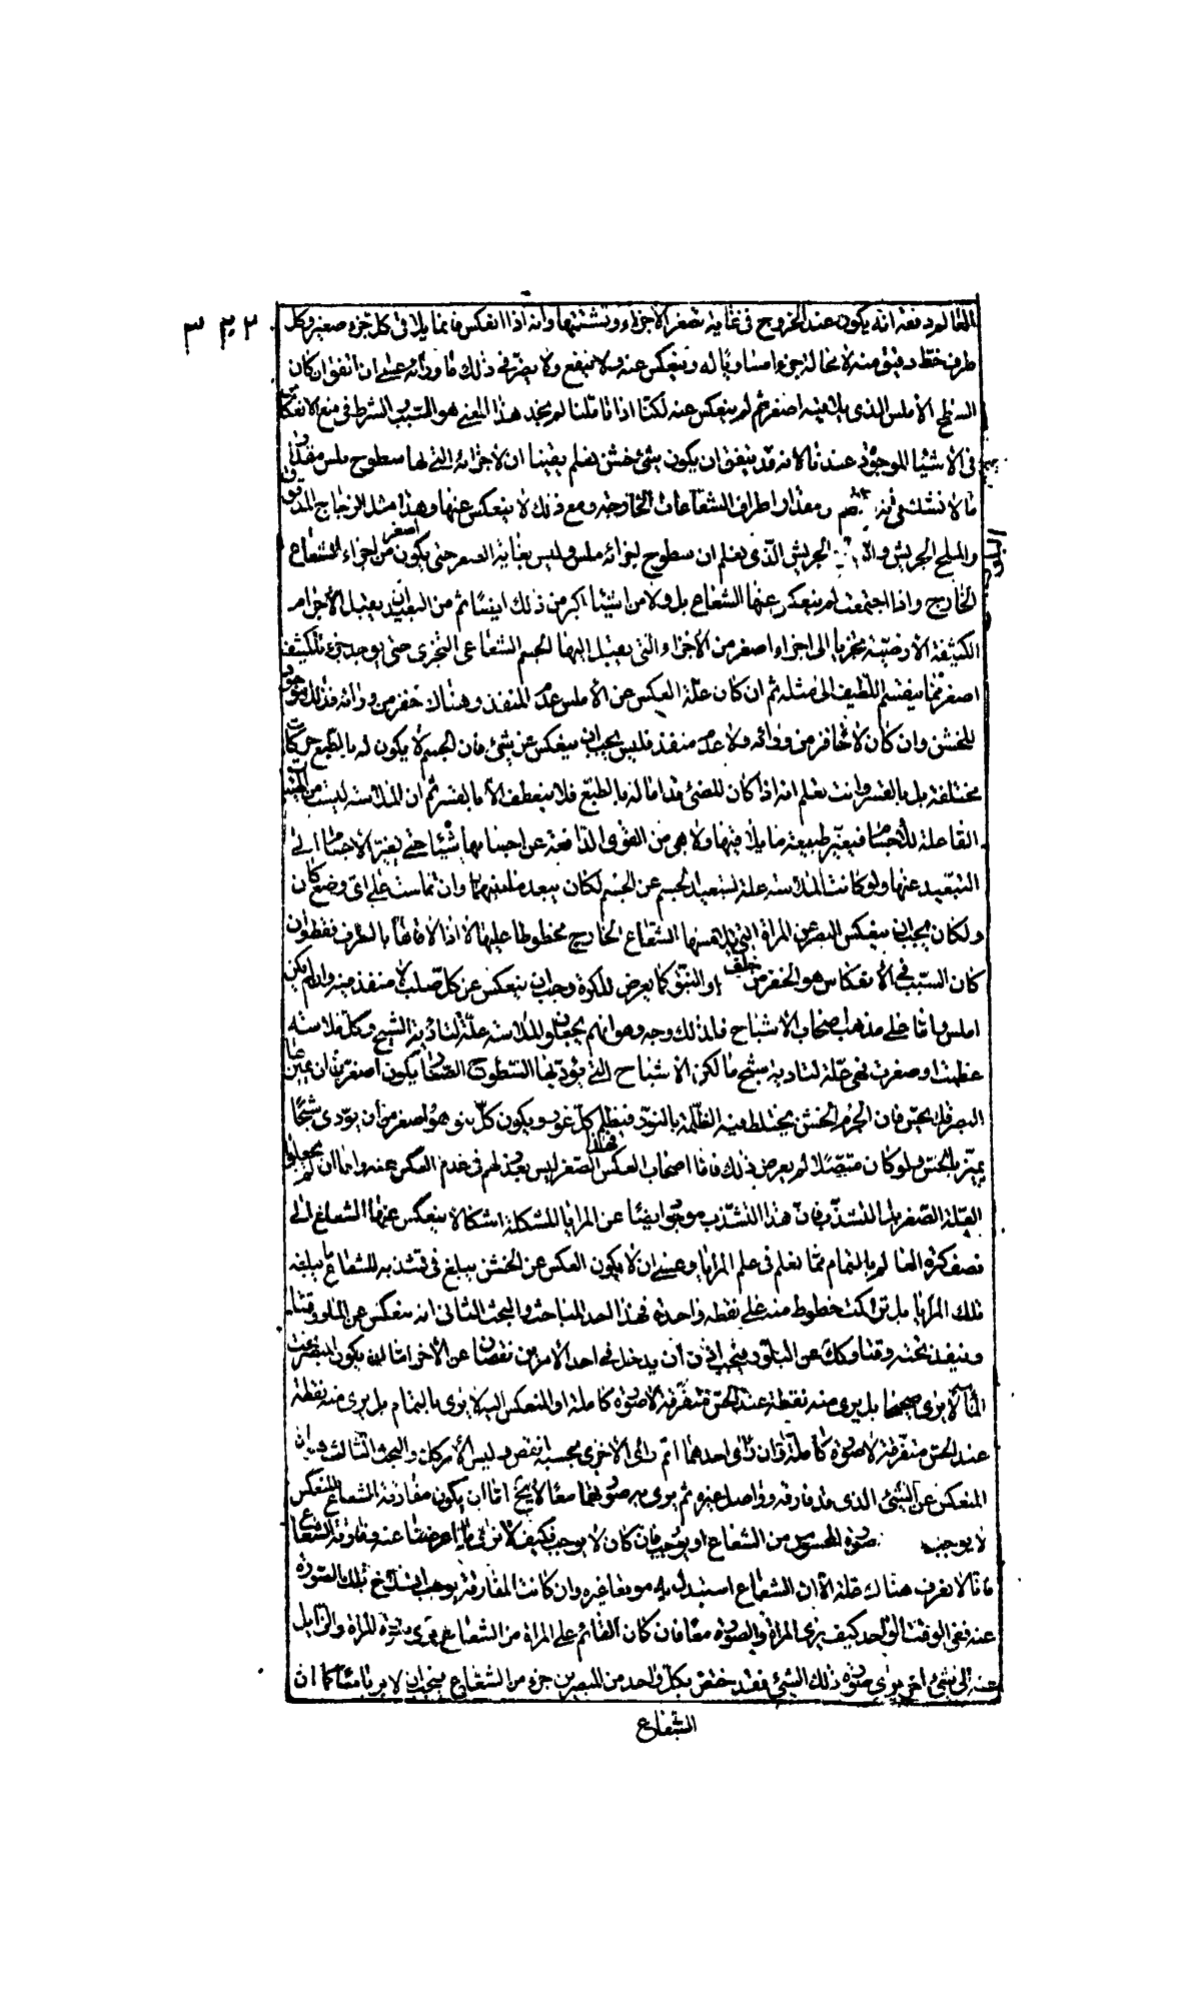 العالم دفعة انه يكون عند الخروج في غاية تصغر الاجزاء وتشتتها وانه اذا انعكس فانما يلاقي كل جزء صغير وكل
طرف خط دقيق منه لا محالة جزءا مساويا له وينعكس عنه ولا ينفع ولا يضر في ذلك ما وراءه عسى ان اتفق ان كان
السطح الاملس الذي يلاقيه اصغر ثم لم ينعكس عنه لكنا اذا تاملنا لم نجد هذا المعنى هو السبب والشرط في منع الانعكاس
في الاشياء الموجودة عندنا لانه قد يتفق ان يكون شئ خشن نعلم يقينا ان لاجزائه التي لها سطوح ملس مقدارا
ما لا نشك في انه ومقدار اطراف الشعاعات الخارجة ومع ذلك لا ينعكس عنها وهذا مثل الزجاج المدقوق
والملح الجريش الجريش الذي نعلم ان سطوح اجزائه ملس وليس بغاية الصغر حتى يكون اصغر من اجزاء الشعاع
الخارج واذا اجتمعت لم ينعكس عنها الشعاع بل ولا من اشياء اكبر من ذلك ايضا ثم من البعيد ان يقبل الاجرام
الكثيفة الارضية تجزيا الى اجزاء اصغر من الاجزاء التي يقبل اليها الجسم الشعاعي التجزي حتى يوجد جزء للكثيف
اصغر مما ينقسم اللطيف الى مثله ثم ان كان علة العكس عن الاملس عدم المنفذ وهناك حفز من ورائه فذلك موجود
للخشن وان كان لا حافز من ورائه ولا عدم منفذ فليس يجب ان ينعكس عن شئ فان الجسم لا يكون له بالطبع حركات
مختلفة بل بالقسر وانت تعلم انه اذا كان المضئ قد اماله بالطبع فلا ينعطف الا بالقسر ثم ان الملاسة ليست من الهيئات
الفاعلة للاجسام فيغير طبيعة ما يلاقيها ولا هي من القوى الدافعة عن اجسامها شيئا حتى يقسر الاجسام الى
التبعيد عنها ولو كانت الملاسة علة لتبعيد الجسم عن الجسم لكان يبعد ما بينهما وان تماست على اي وضع كان
ولكان يجب ان ينعكس البصر عن المرآة التي يلامسها الشعاع الخارج مخطوطا عليها لا اذا لاقاها بالطرف فقط وان
كان السبب في الانعكاس هو الحفز من خلف او النتوء كما يعرض للكرة وجب ان ينعكس عن كل صلب لا منفذ فيه وان لم يكن
املس واما على مذهب اصحاب الاشباح فلذلك وجه وهو انهم يجعلون الملاسة علة لتادية الشبح وكل ملاسة
عظمت او صغرت فهي علة لتادية شبح ما لكن الاشباح التي يؤديها السطوح الصغار يكون اصغر من ان يميزها
البصر فلا يحس فان الجرم الخشن يختلط فيه الظلمة بالنور فيظلم كل غور ويكون كل نتو هو اصغر من ان يؤدي شبحا
يميز بالحس ولو كان متصلا لم يعرض ذلك فاما اصحاب العكس فهذا الصغر ليس بعذر لهم في عدم العكس عنه واما ان لم يجعلوا
العلة الصغر بل التشذب فان هذا التشذب موجود ايضا عن المرايا المشكلة اشكالا ينعكس عنها الشعاع الى
نصف كرة العالم بالتمام مما تعلم في علم المرايا وعسى ان لا يكون العكس عن الخشن يبلغ في تشذيبه للشعاع ما يبلغه
تلك المرايا بل تراكمت خطوط منه على نقطة واحدة فهذا احد المباحث والبحث الثاني انه ينعكس عن الماء وقتا
وينفذ تحته وقتا وكذلك عن البلور فيجب اذن ان يدخل في احد الامرين نقصان عن الاخر اما ان يكون المبصر تحت
الماء لا يرى صحيحا بل يرى منه نقطة عند الحس متفرقة لا صورة كاملة او المنعكس اليه لا يرى بالتمام بل يرى منه نقطة
عند الحس متفرقة لا صورة كاملة وان راى احدهما اتم راى الاخرى بحسبه انقص وليس الامر كذلك والبحث الثالث هو ان
المنعكس عن الشئ الذي قد فارقه وواصل غيره ثم يرى به صورتهما معا لا يخ اما ان يكون مفارقة الشعاع المنعكس
لا يوجب صورة المحسوس من الشعاع او يوجب فان كان لا يوجب فكيف لا نرى ما اعرضنا عنه وفارقه الشعاع
فانا لا نعرف هناك علة الا ان الشعاع استبدل به موقعا غيره وان كانت المفارقة يوجب انسلاخ تلك الصورة
عنه ففي الوقت الواحد كيف يرى المرآة والصورة معا فان كان القائم على المرآة من الشعاع يرى صورة المرآة والزايل
عنه الى شئ اخر يرى صورة ذلك الشئ فقد خصص بكل واحد من المبصرين جزء من الشعاع فيجب ان لا يريا معا كما ان
الشعاع